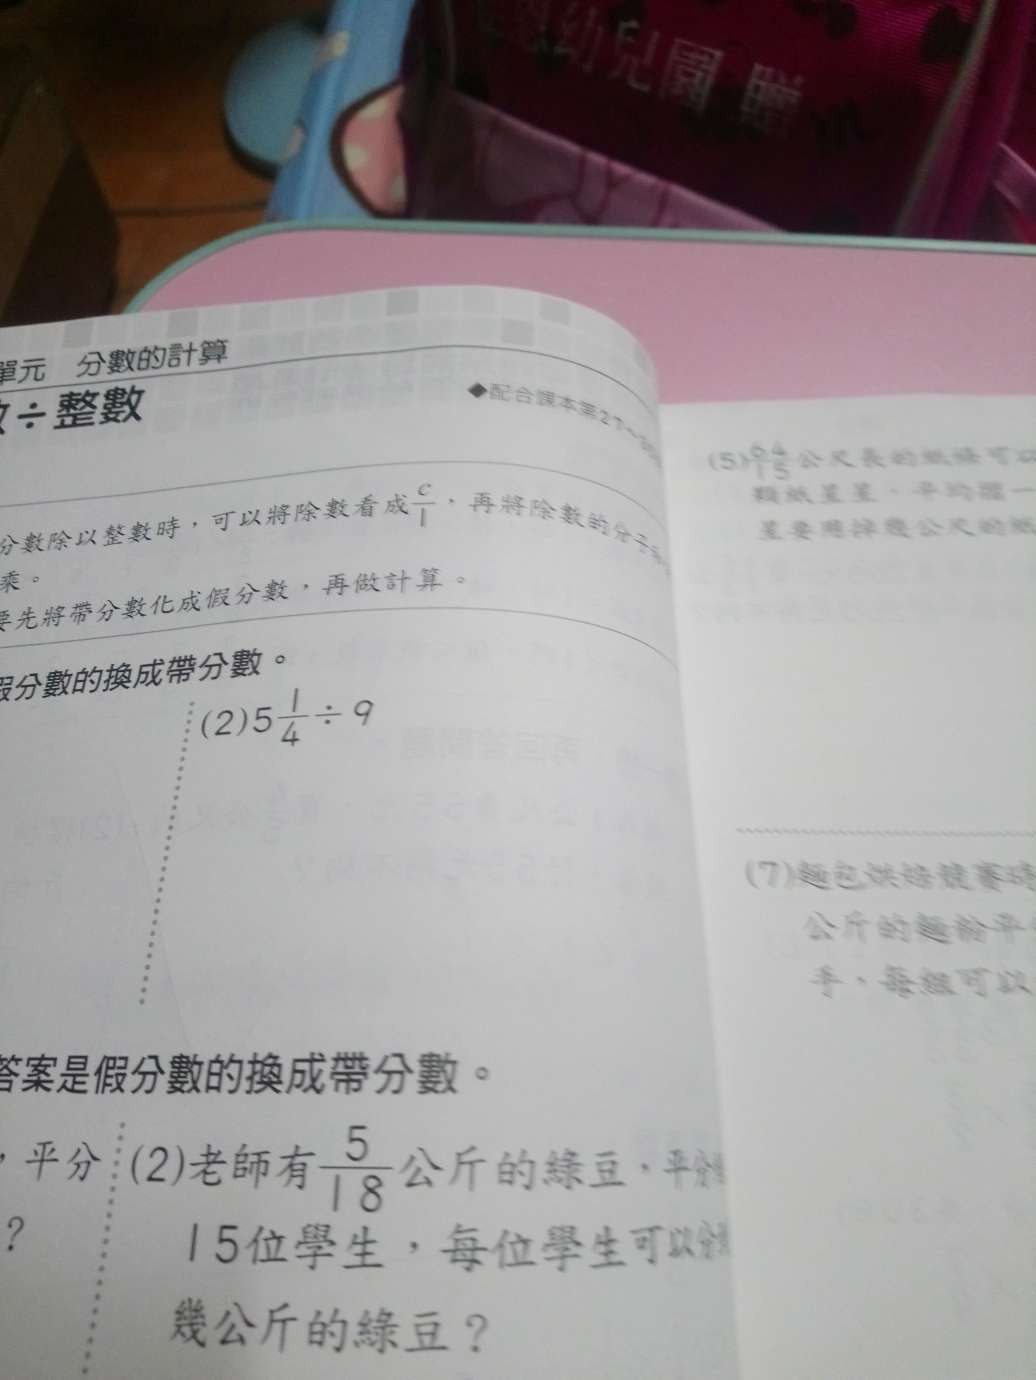 恩幼兒園 贈
單元 分數的計算
÷整數
◆配合課本第27～
分數除以整數時，可以將除數看成c/1，再將除數的分子
乘。
要先將帶分數化成假分數，再做計算。
假分數的換成帶分數。
(2)5 1/4÷9
答案是假分數的換成帶分數。
，平分
？
(2)老師有5/18公斤的綠豆，平分給
15位學生，每位學生可以分
幾公斤的綠豆？
(5)64/15公尺長的紙條可以
顆紙星星，平均摺一
星要用掉幾公尺的紙
(7)麵包烘焙競賽時
公斤的麵粉平
手，每組可以